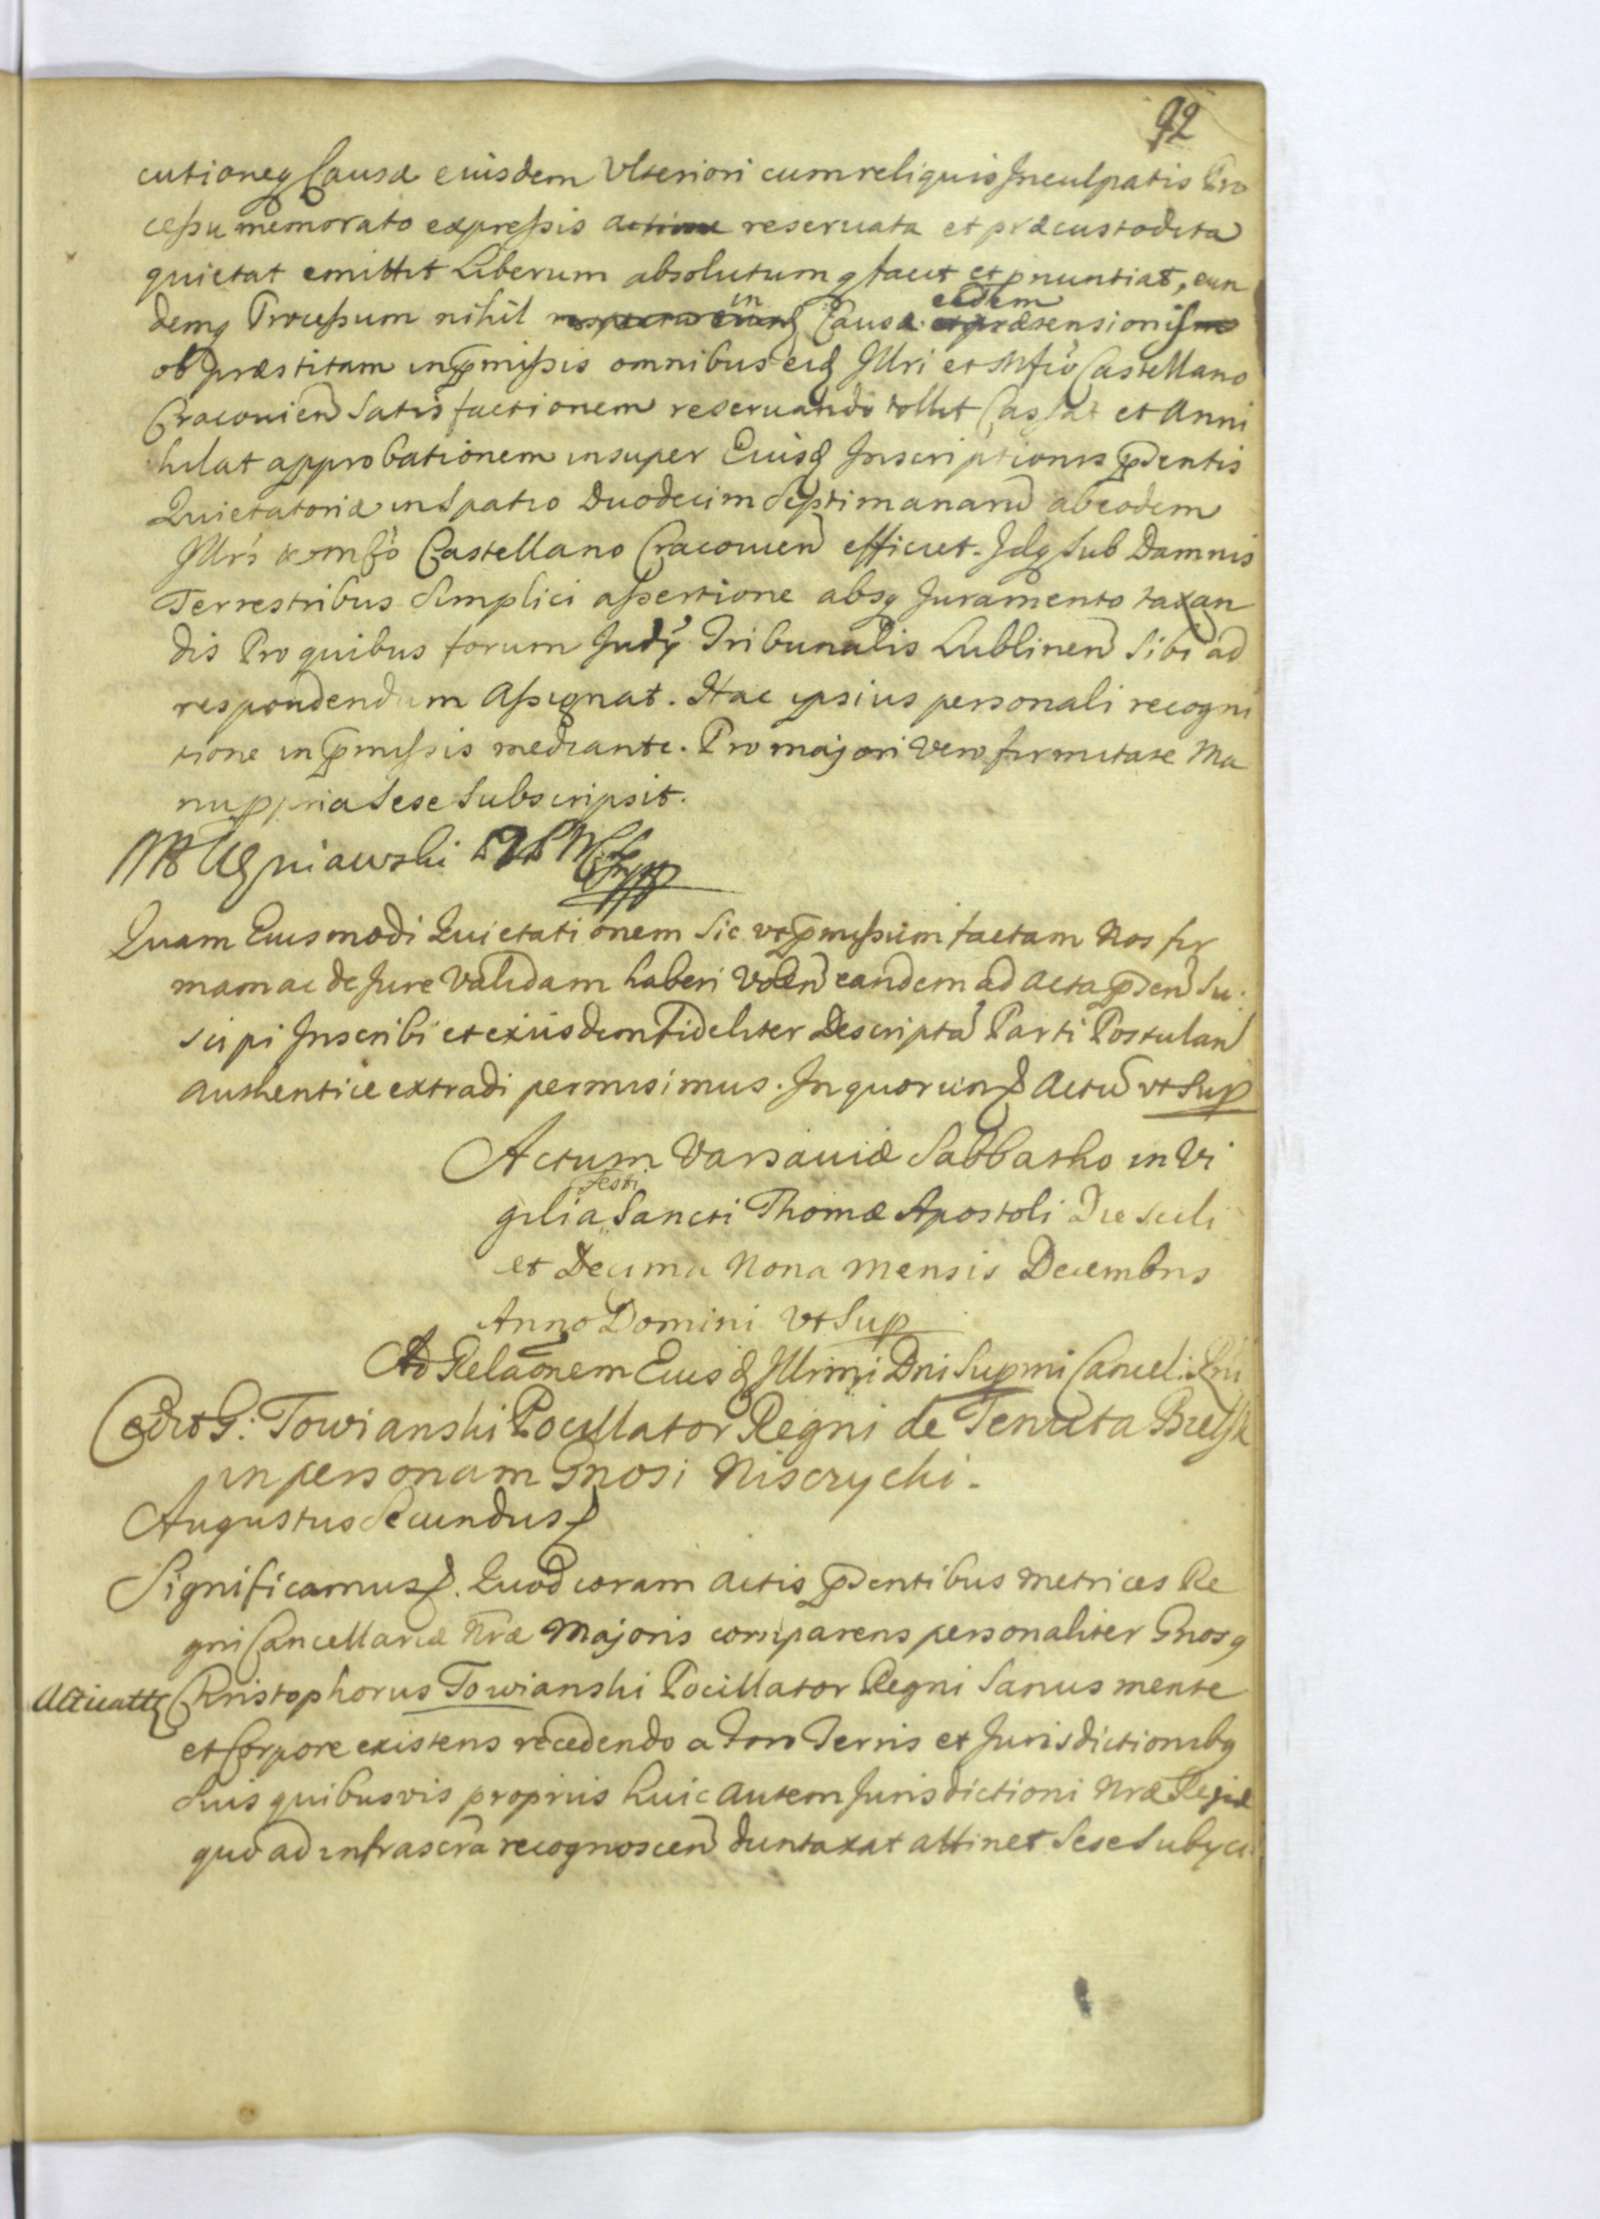 92
cutioneq Causæ eiusdem Ulteriori cum reliquis Inculpatis Pro
cessu memorato expressis actione reservata et præcustodita
quietat emittit Liberum absolutumq facit et pnuntiat, eun
demq Processum nihil in Causa eadem prætensionis
ob præstitam in præmissis omnibus eid Illri et Mfco Castellano
Cracovien Satisfactionem reservando tollit Cassat et Anni
hilat approbationem insuper Eiusd Inscriptionis pdentis
Quietatoriæ in Spatio Duodecim Septimanaru ab eodem
Illri Castellano Cracovien efficiet. Idq Sub Damnis
Terrestribus Simplici assertione absq Juramento taxan
dis Pro quibus forum Judy Tribunalis Lublinen Sibi ad
respondendum Assignat. Hac ipsius personali recogni
tione in pmissis mediante. Pro majori vero firmitate Ma
nu ppria Sese Subscripsit.
Quam Eiusmodi Quietationem Sic ut pmissum factam Nos fir
mam ac de Jure Validam haberi Volen eandem ad Acta pden Su
scipi Inscribi et eiusdem Fideliter Descripta Parti Postulan
authentice extradi permisimus. In quorum Actu ut Sup
Actum Varsaviæ Sabbatho in Vi
gilia Festi Sancti Thomæ Apostoli Die scili
et Decima Nona Mensis Decembris
Anno Domini Ut Sup
Ad Relaonem Eiusd Illrmi Dni Supmi Cancel: Rni
G: Towianski Pocillator Regni de Tenuta Bielsk
in personam Gnosi Niscrychi.
Augustus Secundus
Significamus. Quod coram Actis pdentibus Metrices Re
gni Cancellariæ Nræ Majoris comparens personaliter Gnosq
Christophorus Towianski Pocillator Regni Sanus mente
et Corpore existens recedendo a Foro Terris et Jurisdictionibq
Suis quibusvis propriis huic autem Jurisdictioni Nræ Regiæ
quo ad infrascra recognoscen duntaxat attinet Sese Subyci